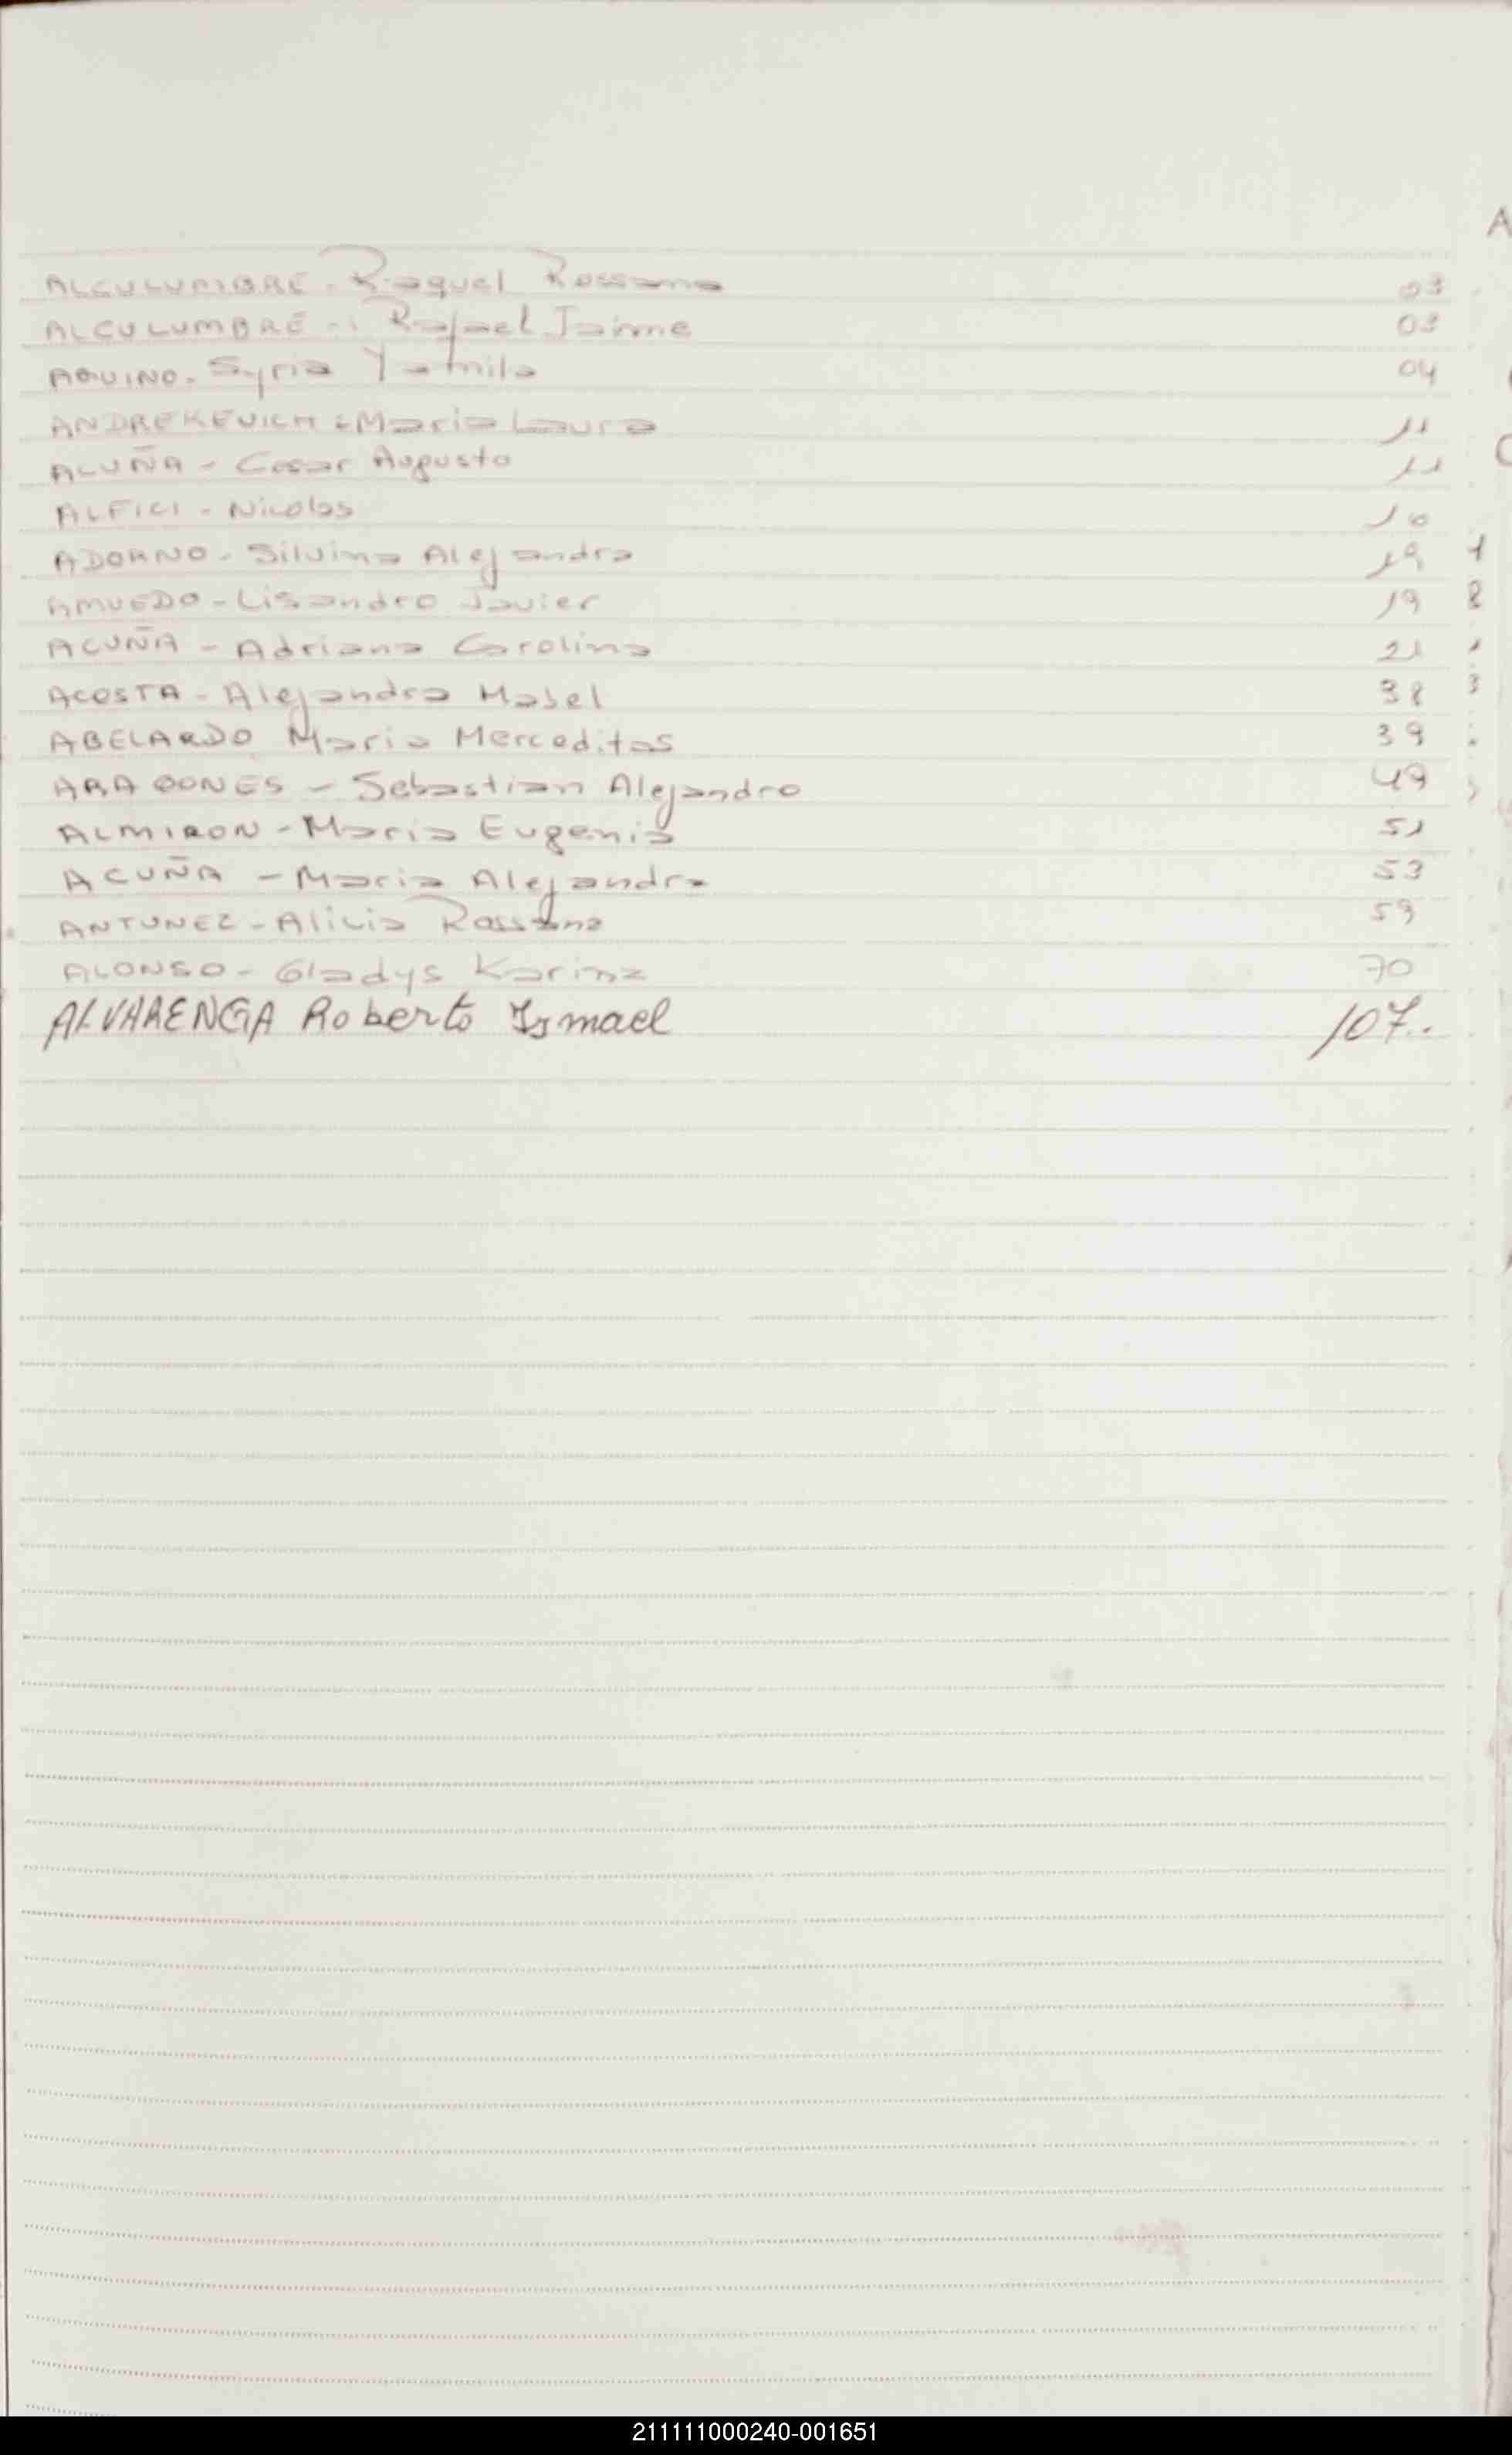 ALCULUMBRE - Raquel Rossana 03
ALCULUMBRE - Rafael Jaime 03
AQUINO - Syria Yamila 04
ANDREKEVICH - Maria Laura 11
ACUÑA - Cesar Augusto 11
ALFICI - Nicolas 10
ADORNO - Silvina Alejandra 19
AMUEDO - Lisandro Javier 19
ACUÑA - Adriana Carolina 21
ACOSTA - Alejandra Mabel 38
ABELARDO Maria Merceditas 39
ARAGONES - Sebastian Alejandro 49
ALMIRON - Maria Eugenia 51
ACUÑA - Maria Alejandra 53
ANTUNEZ - Alicia Rossana 59
ALONSO - Gladys Karina 70
ALVARENGA Roberto Ismael 107..
211111000240-001651